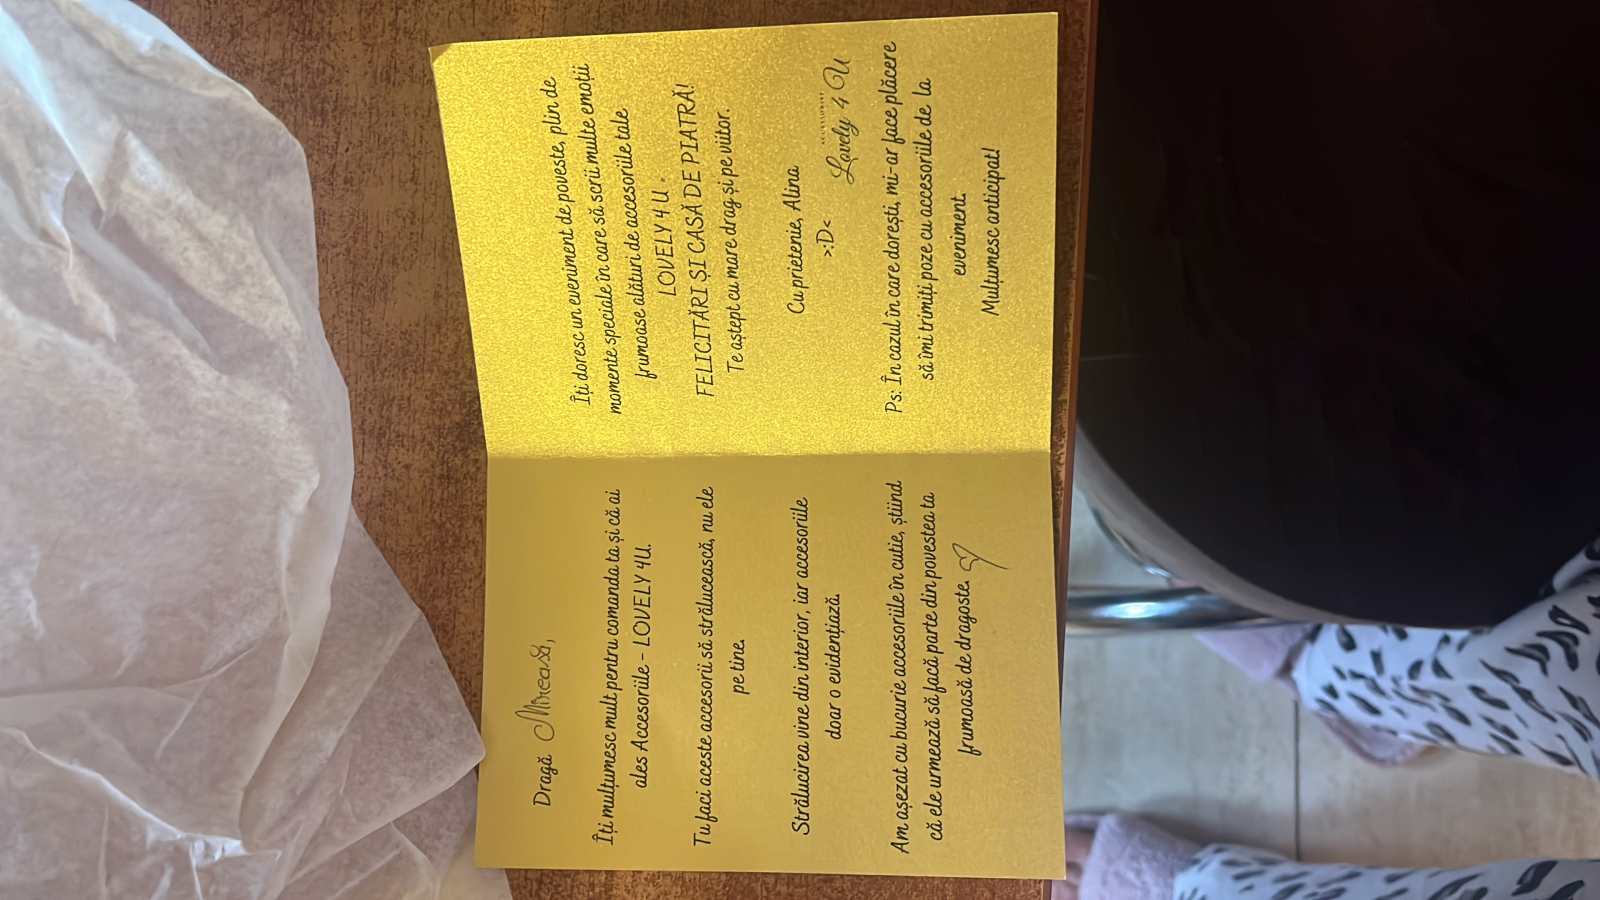 Dragă Mireasă,
Îți mulțumesc mult pentru comanda ta și că ai
ales Accesoriile - LOVELY 4U.
Tu faci aceste accesorii să strălucească, nu ele
pe tine.
Strălucirea vine din interior, iar accesoriile
doar o evidențiază.
Am așezat cu bucurie accesoriile în cutie, știind
că ele urmează să facă parte din povestea ta
frumoasă de dragoste.
Îți doresc un eveniment de poveste, plin de
momente speciale în care să scrii multe emoții
frumoase alături de accesoriile tale
LOVELY 4 U .
FELICITĂRI ȘI CASĂ DE PIATRĂ!
Te aștept cu mare drag și pe viitor.
Cu prietenie, Alina
>:D<
ACCESORIILE
Lovely 4 U
Ps: În cazul în care dorești, mi-ar face plăcere
să îmi trimiți poze cu accesoriile de la
eveniment.
Mulțumesc anticipat!